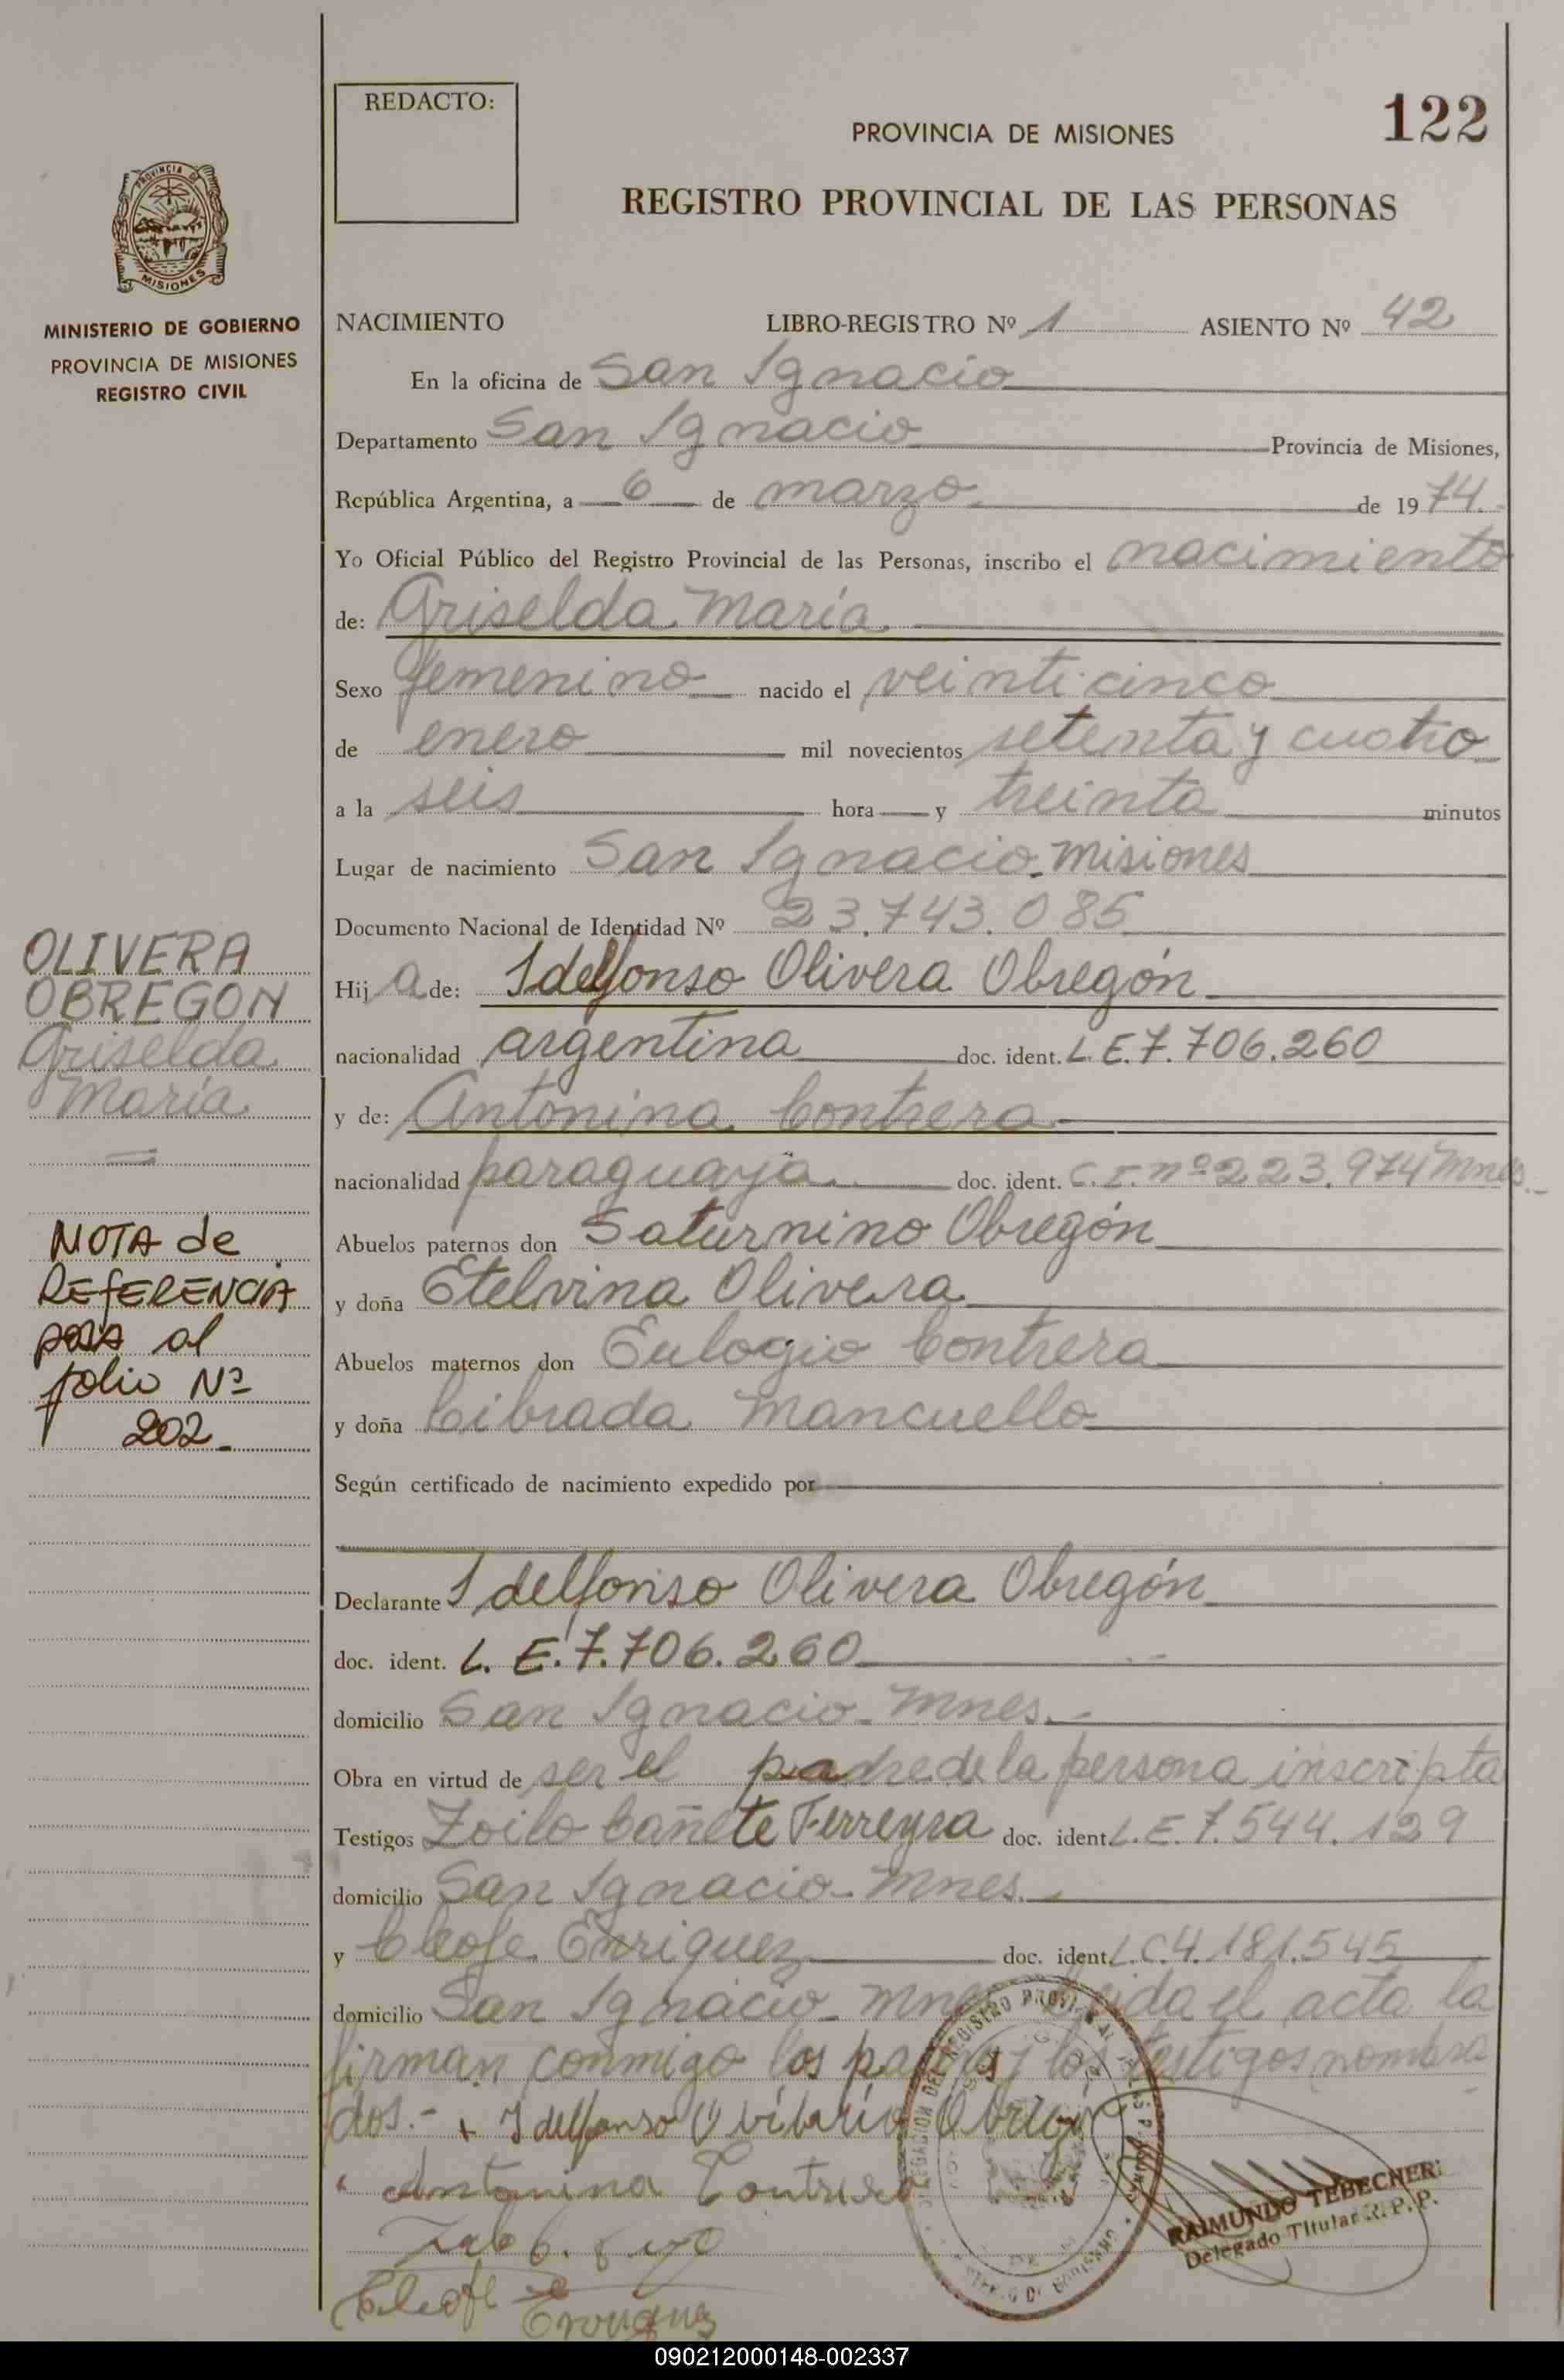 REDACTO:
122
PROVINCIA DE MISIONES
REGISTRO PROVINCIAL DE LAS PERSONAS
PROVINCIA DE
MISIONES
MINISTERIO DE GOBIERNO
PROVINCIA DE MISIONES
REGISTRO CIVIL
NACIMIENTO LIBRO-REGISTRO Nº 1 ASIENTO Nº 42
En la oficina de San Ignacio
Departamento San Ignacio Provincia de Misiones,
República Argentina, a 6 de marzo de 1974.-
Yo Oficial Público del Registro Provincial de las Personas, inscribo el nacimiento
de: Griselda María
Sexo femenino nacido el veinticinco
de enero mil novecientos setenta y cuatro
a la seis hora y treinta minutos
Lugar de nacimiento San Ignacio-Misiones
Documento Nacional de Identidad Nº 23.743.085
Hija de: Idelfonso Olivera Obregón
nacionalidad argentina doc. ident. L.E.7.706.260
y de: Antonina Contrera
nacionalidad paraguaya doc. ident. C.I.nº223.974 Mnes.-
Abuelos paternos don Saturnino Obregón
y doña Etelvina Olivera
Abuelos maternos don Eulogio Contrera
y doña Librada Mancuello
Según certificado de nacimiento expedido por
Declarante Idelfonso Olivera Obregón
doc. ident. L. E. 7.706.260
domicilio San Ignacio-Mnes.-
Obra en virtud de ser el padre de la persona inscripta
Testigos Zoilo Cañete Ferreyra doc. ident. L.E.7.544.129
domicilio San Ignacio-Mnes.-
y Cleofe Enriquez doc. ident. L.C.4.181.545
domicilio San Ignacio-Mnes. Leida el acta la
firman conmigo los padres y los testigos nombra
dos.- + Idelfonso Obregón
Antonina Contrera
Cleofe Enriquez
RAIMUNDO TEBECHERI
Delegado Titular R. P. P.
OLIVERA
OBREGON
Griselda
María
NOTA de
REFERENCIA
pasa al
folio Nº
202.-
090212000148-002337